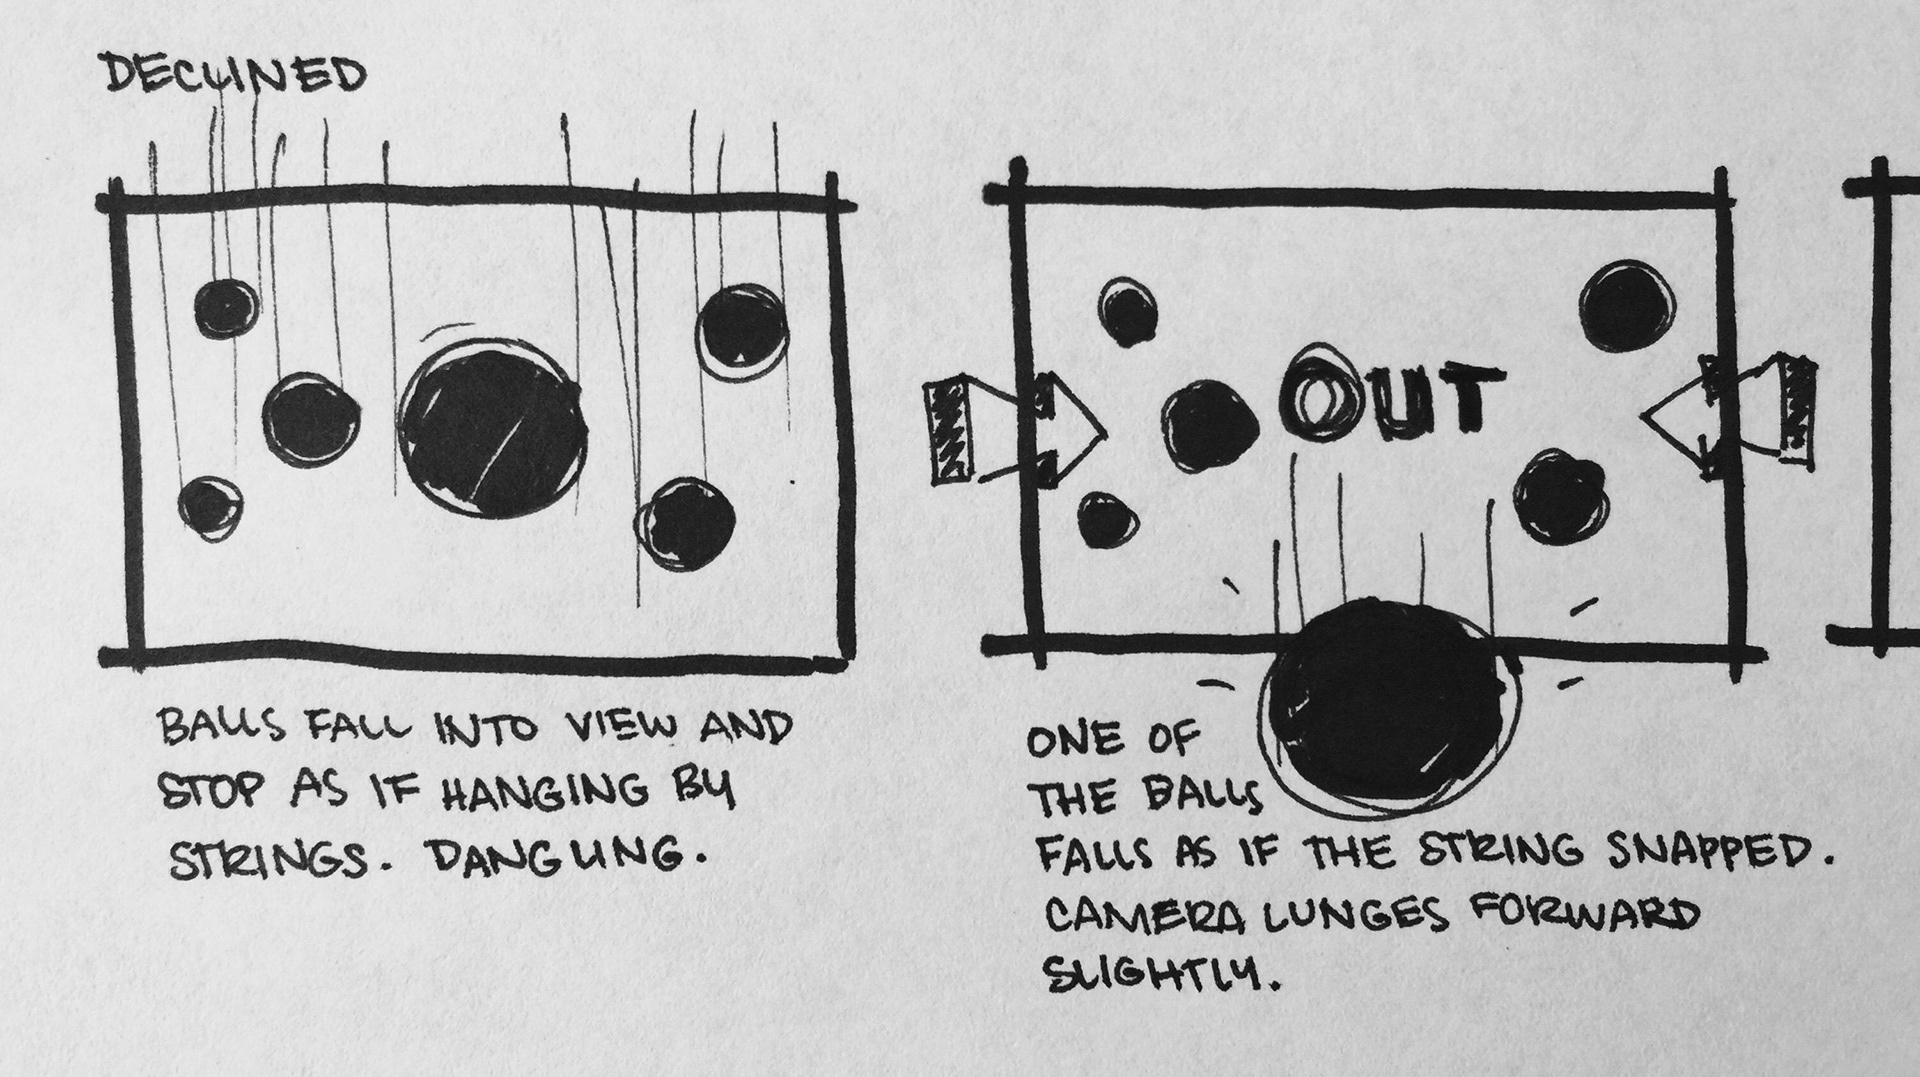 DECLINED
BALLS FALL INTO VIEW AND
STOP AS IF HANGING BY
STRINGS. DANGLING.
OUT
ONE OF
THE BALLS
FALLS AS IF THE STRING SNAPPED.
CAMERA LUNGES FORWARD
SLIGHTLY.